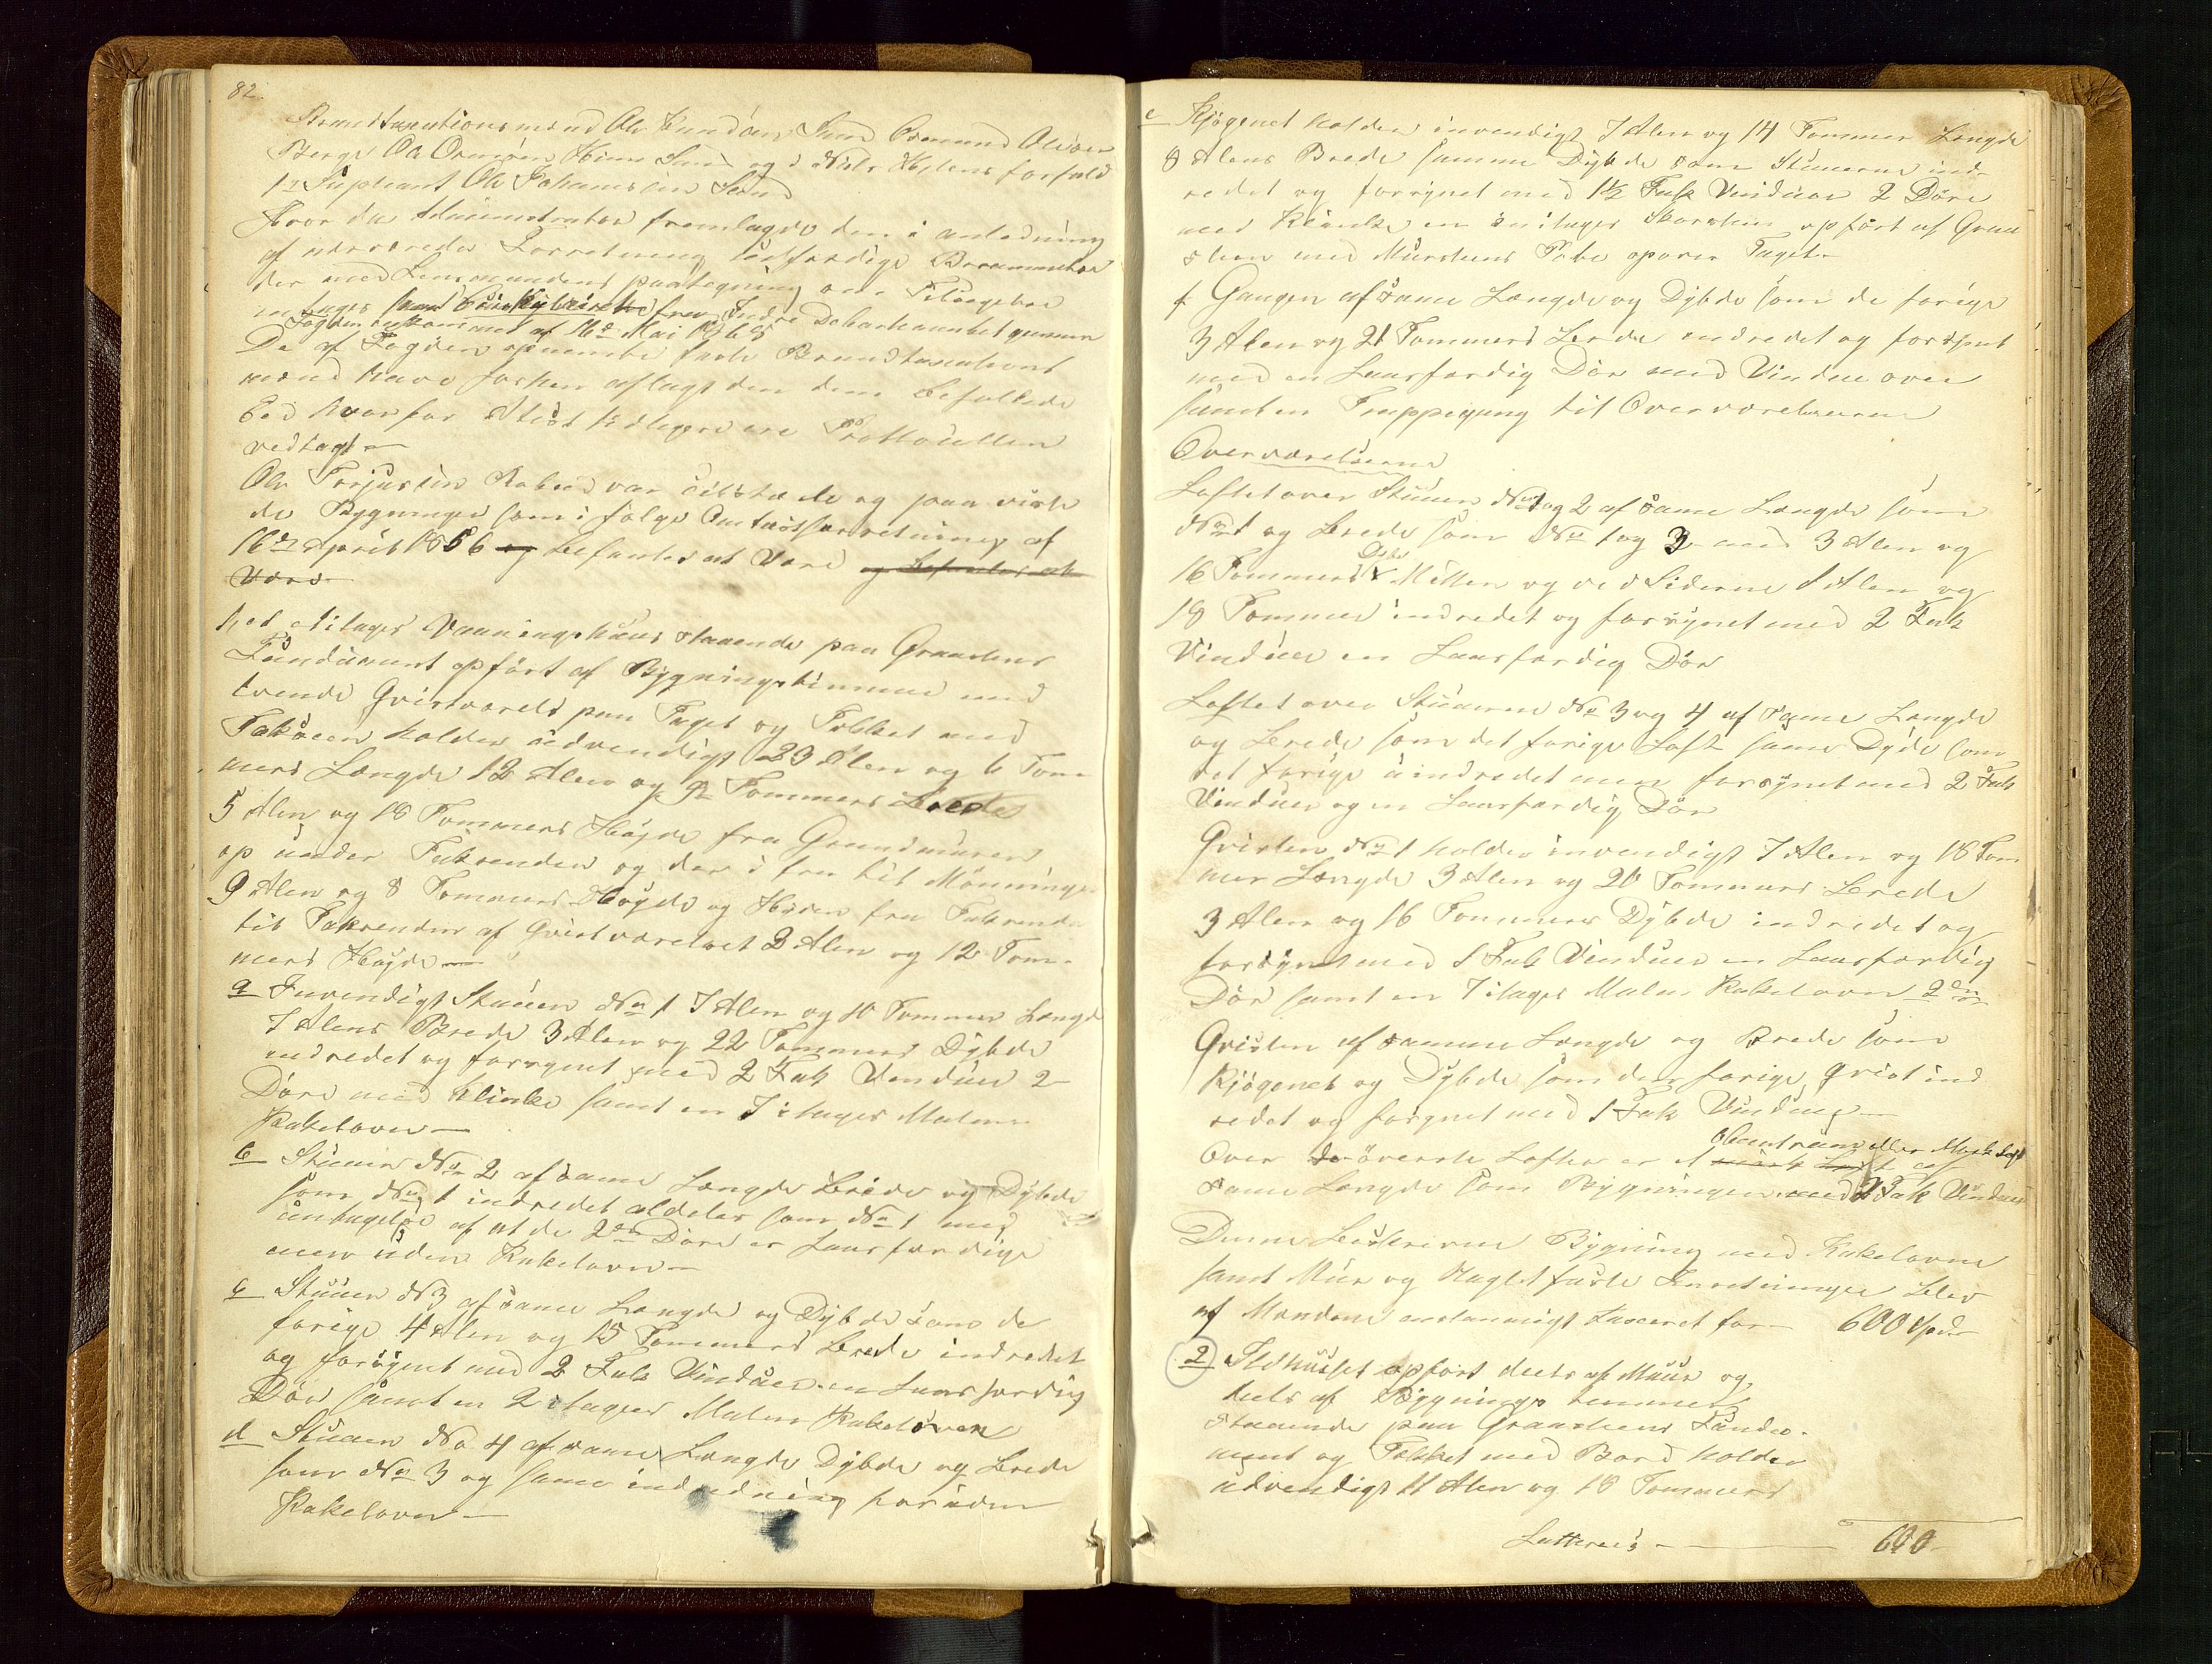 82.
Brandtaxationsmænd Ole Knudsen Sund Osmund Olsen
Berge Ole Ormsen Sund og i Niels forfald
1ste Supleant Ole Johannessen Sund
Hvor da Administrator fremlagde den i anledning
af nærværende Forretning udfærdige Berammelse
der med Lensmandens paategning om Tilsigelse
fra Indre
Fogden ankommet af 16de Mai 1865
De af Fogden opnævnte faste Brandtaxations
mænd have forhen aflagt den dem befallede
Eed hvorfor Attest tidligere ere Protocollen
vedtagt
Ole Torjusen var tilstæde og paa viste
de Bygninger som i følge Omtaxtforretning af
16de April 1856 og befantes at være og befantes at
være
1, et Etages Vaaningshuus staaende paa Graasteens
Fundament opført af Bygningstømmer med
tvende Qvistværels paa Taget og Tækket med
Taksteen holder udvendigt 23 Alen og 6 Tom
mers Længde 12 Alen og 9 Tommers Brede
5 Alen og 18 Tommers Høyde fra Grundmuren
op under Takrenden og der i fra til Mønningen
9 Alen og 8 Tommers Høyde og Høiden fra Takrenden
til Takrenden af Qvistværelset 3 Alen og 12 Tom-
mers Høyde
a Invendigt Stuuen No 1 7 Alen og 10 Tommer Længde
7 Alens Brede 3 Alen og 22 Tommers Dybde
indredet og forsynet med 2 Fak Vinduer 2
Døre med Klinke samt en 7 Etages Malm
Kakelovn
b Stuuen No 2 af same Længde Brede og Dybde
som No 1 indredet aldeles som No 1 med
undtagelse af at de 2de Døre er Laasfærdige
men uden Kakelovn
c Stuuen No 3 af same Længde og Dybde som de
forige 4 Alen og 15 Tommers Brede indredet
og forsynet med 2 Fak Vinduer en Laasfærdig
Dør samt en 2 etages Malm Kakelovn
d Stuuen No 4 af same Længde Dybde og Brede
som No 3 og same indredning foruden
Kakelovn
e Kjøgenet holder invendigt 7 Alen og 14 Tommer Længde
8 Alens Brede samme Dybde som Stuuerne ind
redet og forsynet med 1½ Fak Vinduer 2 Døre
med Klinke en enetages Skorsteen opført af Graa
steen med Muursteens Pibe opover Taget
f Gangen af same Længde og Dybde som de forige
3 Alen og 21 Tommers Brede indredet og forsynet
med en Laasfærdig Dør med Vindue over
samt en Trappegang til Overværelserne
Overværelserne
Loftet over Stuuen No 1 og 2 af same Længde som
No 1 og Brede som No 1 og 3 med 3 Alen og
16 Tommers Dybde i Mitten og ved Siderne 1 Alen og
18 Tommer indredet og forsynet med 2 Fak
Vinduer en Laasfærdig Dør
Loftet over Stuuerne No 3 og 4 af same Længde
og Brede som det forige Loft same Dyde som
det forige uindredet men forsynet med 2 Fak
Vinduer og en Laasfærdig Dør
Qvisten No 1 holder invendigt 7 Alen og 18 Tom
mer Længde 3 Alen og 20 Tommers Brede
3 Alen og 16 Tommers Dybde indredet og
forsynet med 1 Fak Vinduer en Laasfærdig
Dør samt en 7 etages Malm Kakelovn 2den
Qvisten af samme Længde og Brede som
Kjøgenet og Dybde som den forige Qvist ind
redet og forsynet med 1 Fak Vinduer
Over de øverste Lofter er et mørk Loft af
eller Mørk Loft
same Længde som Bygningen med 2 Fak Vinduer
Denne beskrevne Bygning med Kakelovne
samt Muur og Naglet faste Inretninger blev
af Mændene enstemmigt taxeret for 600 Spd
2 Ildhuuset opført deels af Muur og
deels af Bygnings tømmer
staaende paa Graasteens Funda-
ment og Tækket med Bord holder
udvendigt 11 Alen og 18 Tommers
Latteres - 600-